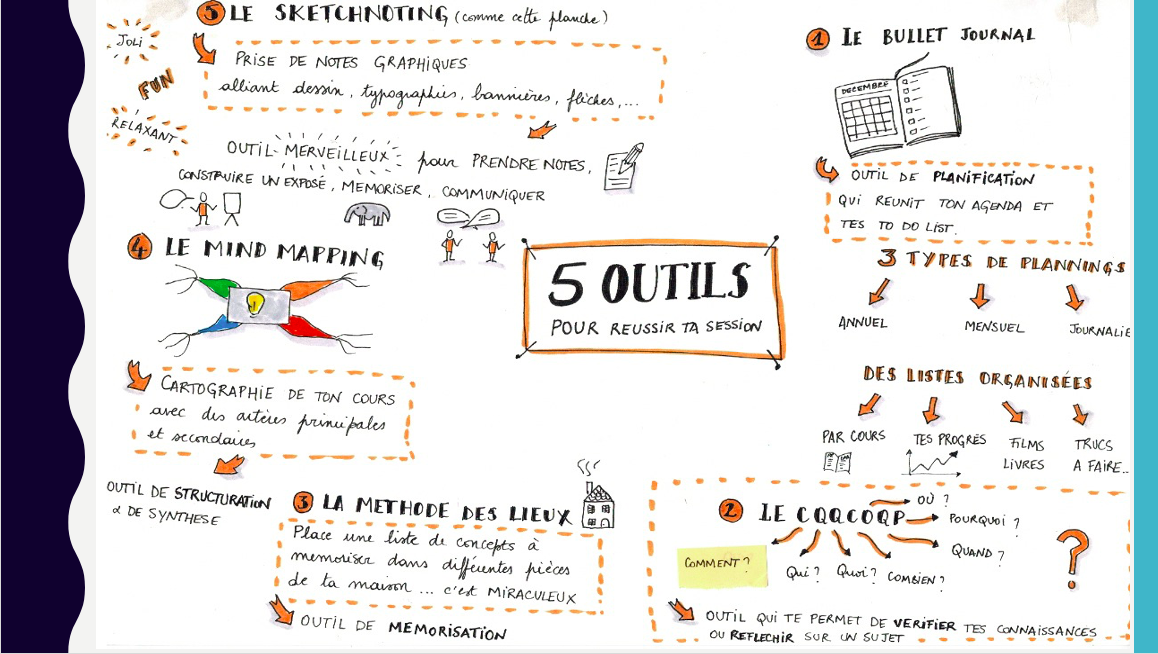 5 OUTILS
POUR REUSSIR TA SESSION
1 LE BULLET JOURNAL
DECEMBRE
OUTIL DE PLANIFICATION
QUI REUNIT TON AGENDA ET
TES TO DO LIST.
3 TYPES DE PLANNINGS
ANNUEL
MENSUEL
JOURNALIE
DES LISTES ORGANISÉES
PAR COURS
TES PROGRÈS
FILMS
LIVRES
TRUCS
A FAIRE...
2 LE CQQCOQP
OÙ ?
POURQUOI ?
QUAND ?
COMBIEN ?
Quoi ?
Qui ?
COMMENT ?
?
OUTIL QUI TE PERMET DE VERIFIER TES CONNAISSANCES
OU REFLECHIR SUR UN SUJET
3 LA METHODE DES LIEUX
Place une liste de concepts à
memoriser dans différentes pièces
de ta maison ... c'est MIRACULEUX
OUTIL DE MEMORISATION
4 LE MIND MAPPING
CARTOGRAPHIE DE TON COURS
avec des artères principales
et secondaires
OUTIL DE STRUCTURATION
& DE SYNTHESE
5 LE SKETCHNOTING (comme cette planche)
JOLI
FUN
RELAXANT
PRISE DE NOTES GRAPHIQUES
alliant dessin, typographies, bannières, flèches,...
OUTIL MERVEILLEUX pour PRENDRE NOTES,
CONSTRUIRE UN EXPOSÉ, MEMORISER, COMMUNIQUER